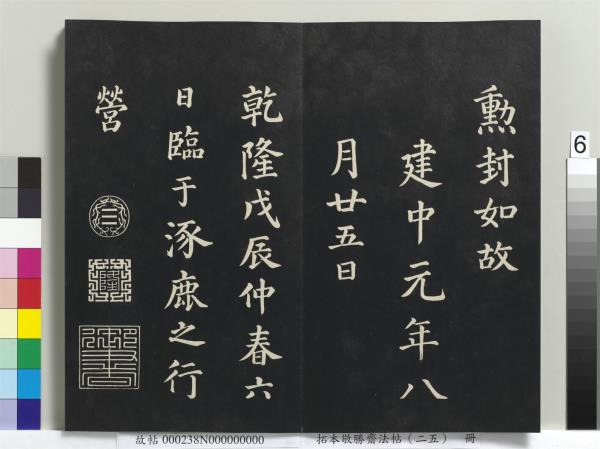 勲封如故
建中元年八
月廿五日
乾隆戊辰仲春六
日臨于涿鹿之行
營
三
乾隆
御書
6
故帖 000238N000000000
拓本敬勝齋法帖（二五） 冊